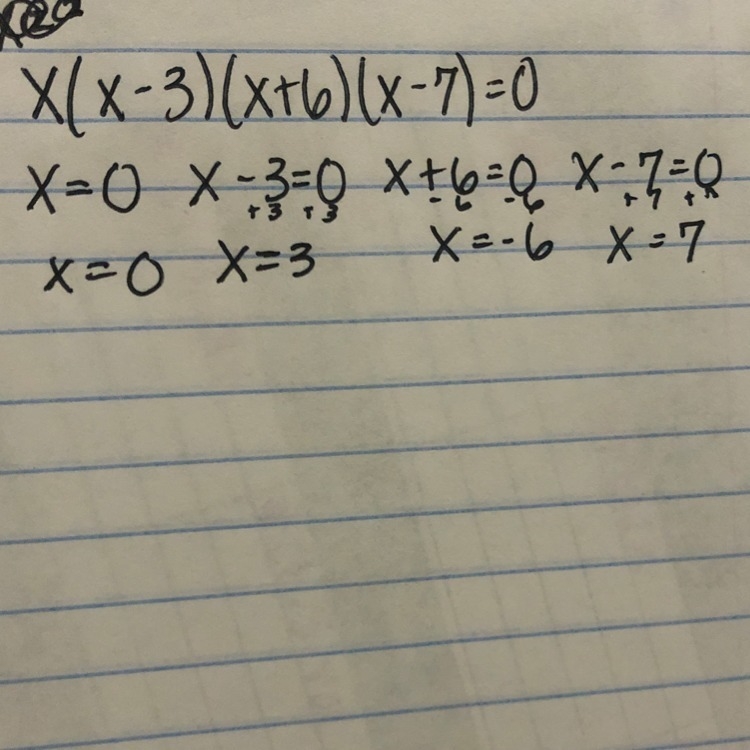 x(x-3)(x+6)(x-7)=0
x=0 x-3=0 x+6=0 x-7=0
+3 +3 -6 -6 +7 +
x=0 x=3 x=-6 x=7